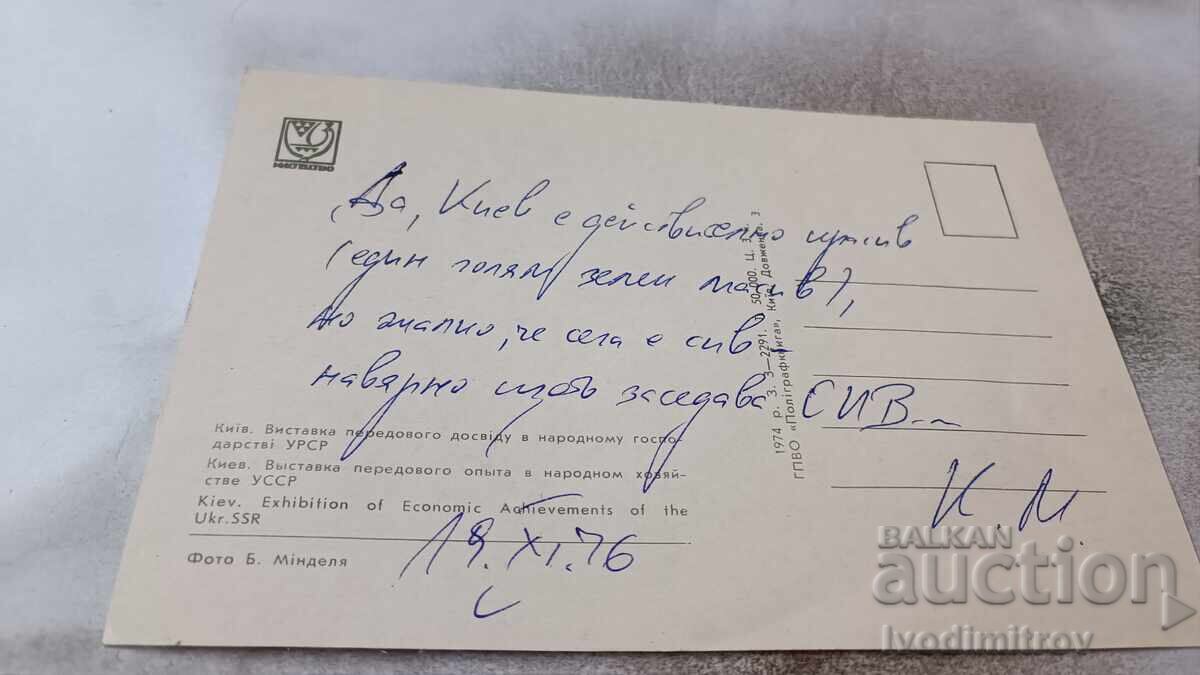 МИСТЕЦТВО
Да, Киев е действително
(един голям зелен масив),
но знално, че сега е сив
навярно заседава СИВ...
К. М.
19.XI.76
Київ. Виставка передового досвіду в народному госпо-
дарстві УРСР
Киев. Выставка передового опыта в народном хозяй-
стве УССР
Kiev. Exhibition of Economic Achievements of the
Ukr.SSR
Фото Б. Мінделя
1974 р. З. 3—2291. 50 000. Ц. 3 к.
ГПВО «Поліграфкнига», Київ, Довженка, 3
BALKAN
auction
Ivodimitrov